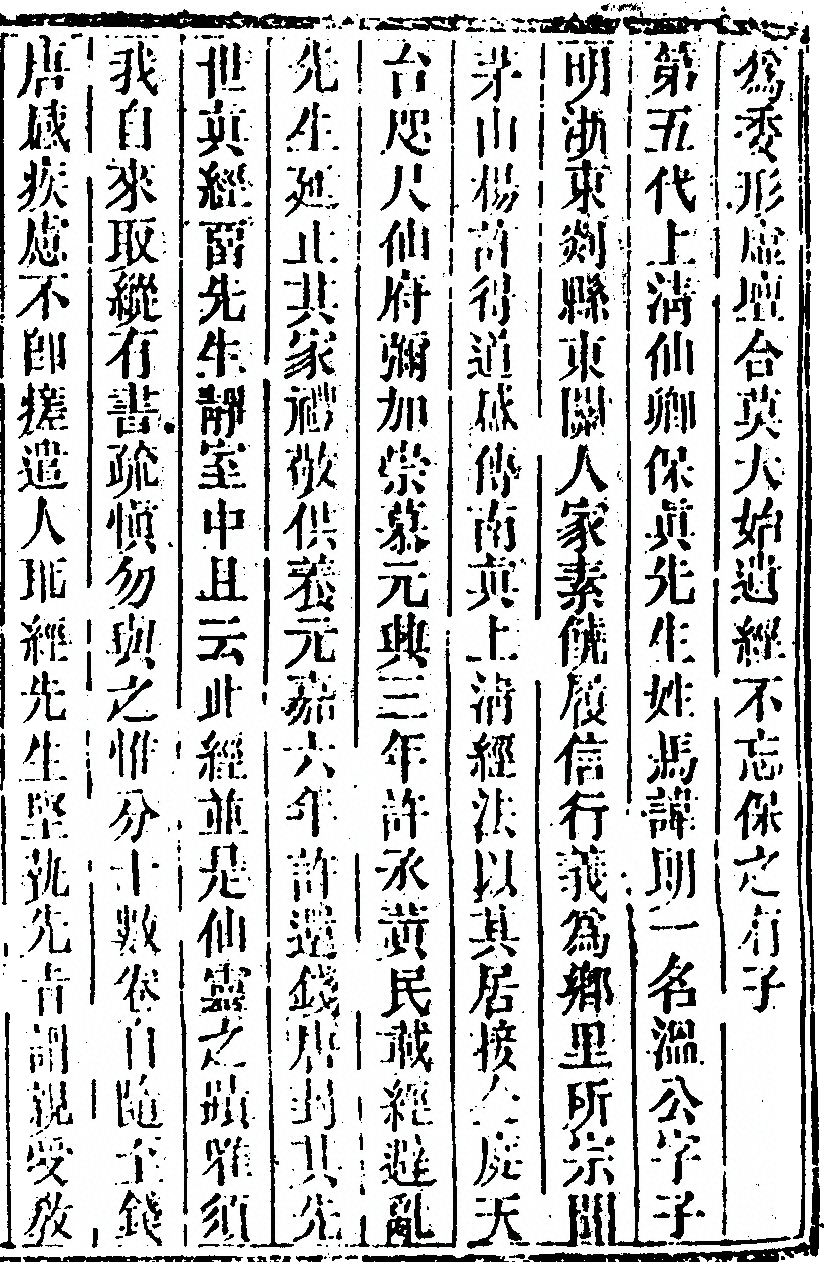 為委形虛壇合莫大始遺經不忘保之有子
第五代上清仙卿保眞先生姓馬諱朗一名溫公字子
明浙東剡縣東闗人家素饒履信行義為鄉里所宗聞
茅山楊許得道盛傳南眞上清經法以其居接人虎天
台咫尺仙府彌加崇慕元興三年許丞黃民藏經避亂
先生延止其家禮敬供養元嘉六年許還錢唐封其先
世眞經留先生靜室中且云此經並是仙靈之蹟唯須
我自來取縱有書疏慎勿與之惟分十數卷自隨至錢
唐感疾慮不卽瘥遣人取經先生堅執先言謂親受教